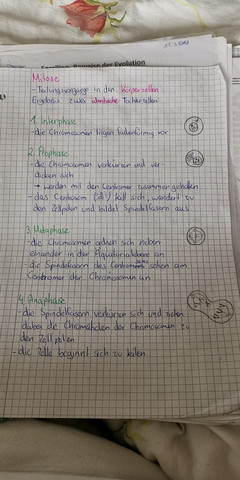 Beweise der Evolution
Mitose
- Teilungsvorgänge in den Körperzellen
Ergebnis zwei identische Tochterzellen
1. Interphase
- die Chromosomen liegen fadenförmig vor
2. Prophase
- die Chromosomen verkürzen und ver-
dicken sich
→ werden mit den Centromer zusammengehalten
- das Centrosom teilt sich, wandert zu
den Zellpolen und bildet Spindelfasern aus
3. Metaphase
- die Chromosomen ordnen sich neben
einander in der Äquatorialebene an
- die Spindelfasern des Centrosoms setzen am
Centromer der Chromosomen an
4. Anaphase
- die Spindelfasern verkürzen sich und ziehen
dabei die Chromatiden der Chromosomen zu
den Zellpolen
- die Zelle beginnt sich zu teilen